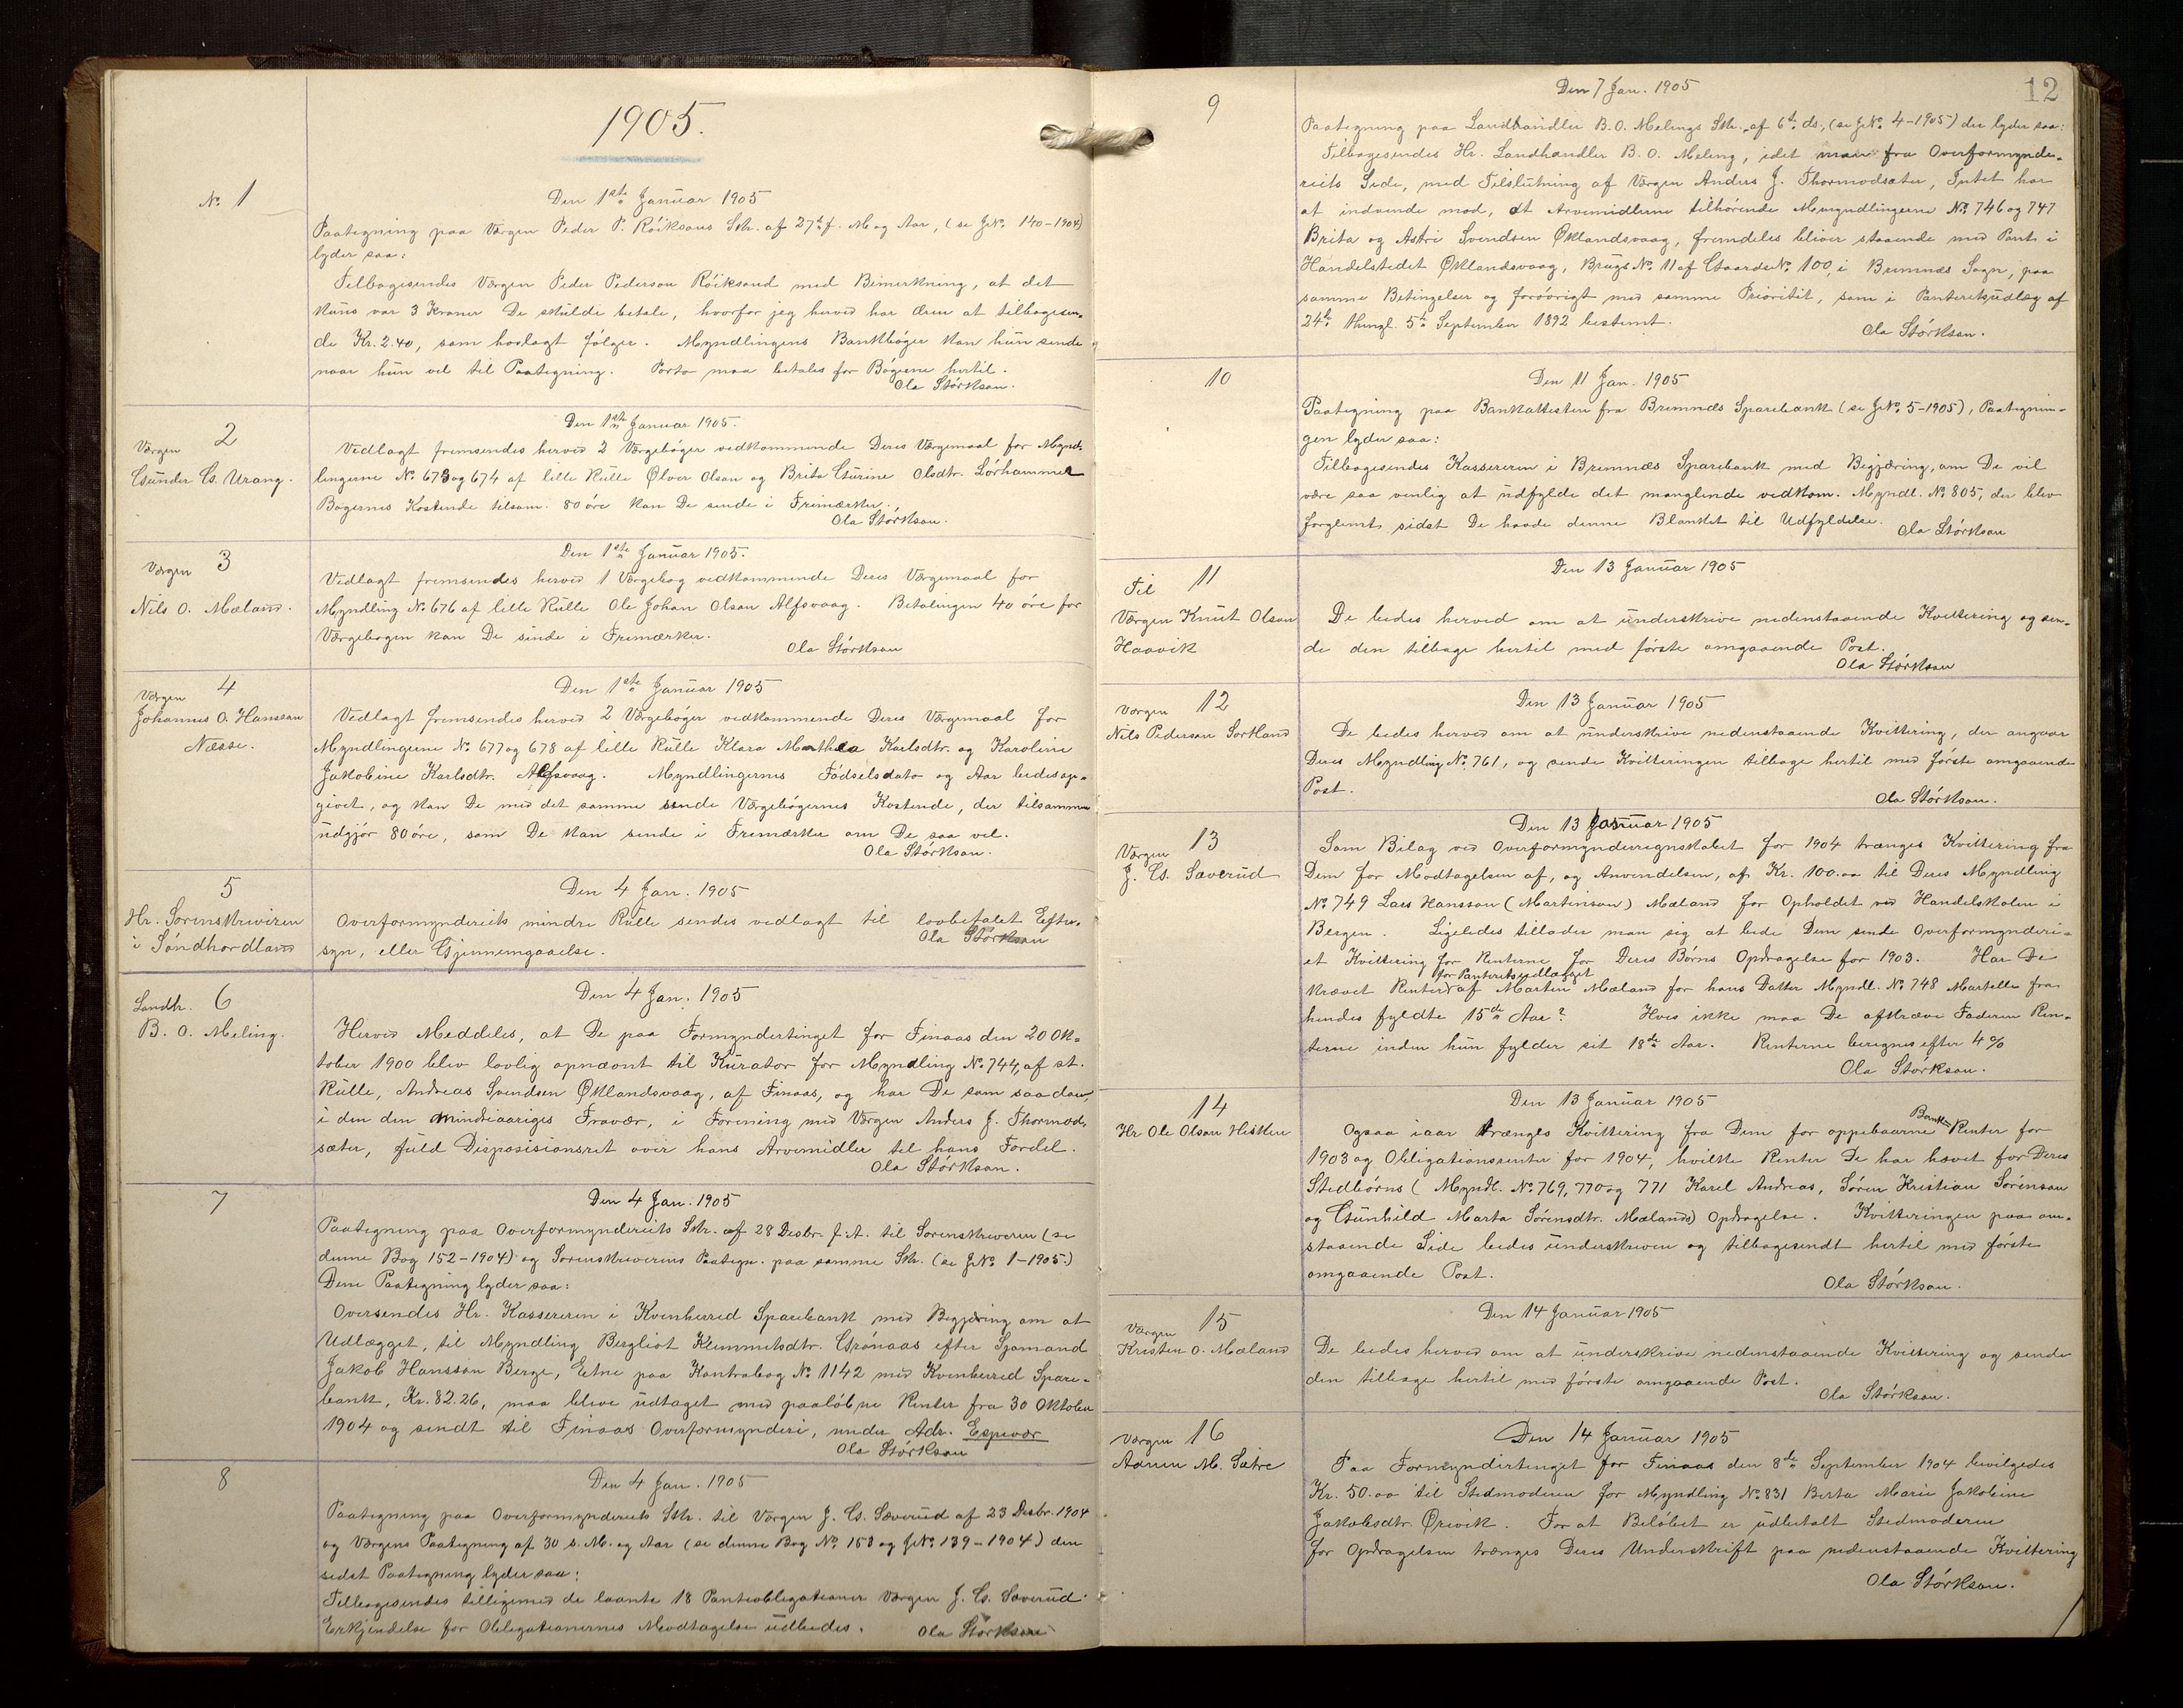 1905.
No. 1
Den 1ste Januar 1905
Paategning paa Værgen Peder P. Röiksons Skr. af 27de f. M. og Aar, (se J№. 140-1904)
lyder saa:
Tilbagesendes Værgen Peder Pederson Röiksund med Bemerkning, at det
kuns var 3 Kroner De skulde betale, hvorfor jeg herved har æren at tilbagesen-
de Kr. 2.40, som hoslagt fölger. Myndlingens Bankböger kan hun sende
naar hun vil til Paategning. Porto maa betales for Bögerne hertil.
Ola Störkson.
2
Værgen
Gunder G. Urang.
Den 1ste Januar 1905.
Vedlagt fremsendes herved 2 Værgeböger vedkommende Deres Værgemaal for Mynd-
lingerne No. 673 og 674 af lille Rulle Ølver Olson og Brita Gurine Olsdtr. Lörhammer
Bøgernes Kostende tilsam. 80 öre kan De sende i Frimærker.
Ola Störkson.
3
Værgen
Nils O. Mæland.
Den 1ste Januar 1905.
Vedlagt fremsendes herved 1 Værgebog vedkommende Deres Værgemaal for
Myndling No. 676 af lille Rulle Ole Johan Olson Alfsvaag. Betalingen 40 öre for
Værgebogen kan De sende i Frimærker.
Ola Störkson
4
Værgen
Johannes O. Hansson
Næsse.
Den 1ste Januar 1905
Vedlagt fremsendes herved 2 Værgeböger vedkommende Deres Værgemaal for
Myndlingerne No. 677 og 678 af lille Rulle Klara Mathea Karlsdtr. og Karoline
Jakobine Karlsdtr. Alfsvaag. Myndlingernes Födselsdato og Aar bedes op-
givet, og kan De med det samme sende Værgebögernes Kostende, der tilsammen
udgjör 80 öre, som De kan sende i Frimærker om De saa vil.
Ola Störkson.
5
Hr. Sorenskriveren
i Söndhordland
Den 4 Jan. 1905
Overformynderiets mindre Rulle sendes vedlagt til lovbefalet Efter-
syn, eller Gjennemgaaelse.
Ola Störkson
6
Landh.
B. O. Meling.
Den 4 Jan. 1905
Herved Meddeles, at De paa Formyndertinget for Finaas den 20 Ok-
tober 1900 blev lovlig opnævnt til Kurator for Myndling No. 744, af st.
Rulle, Andreas Svendsen Øklandsvaag, af Finaas, og har De som saadan,
i den den mindreaariges Fravær, i Forening med Værgen Anders J. Thormod-
sæter, fuld Disposisionsret over hans Arvemidler til hans Fordel.
Ola Störkson.
7
Den 4 Jan. 1905
Paategning paa Overformynderiets Skr. af 28 Desbr. f. A. til Sorenskriveren (se
denne Bog 152-1904) og Sorenskriverens Paategn. paa samme Skr. (se J№ 1-1905.)
Denne Paategning lyder saa:
Oversendes Hr. Kassereren i Kvinherred Sparebank med Begjæring om at
Udlægget, til Myndling Bergliot Klemmetsdtr. Grönaas efter Sjømand
Jakob Hansson Berge, Etne paa Kontrabog No. 1142 med Kvinherred Spare-
bank, Kr. 82.26, maa blive udtaget med paalöbne Renter fra 30 Oktober
1904 og sendt til Finaas Overformynderi, under Adr. Espevær
Ola Störkson
8
Den 4 Jan. 1905
Paategning paa Overformynderiets Skr. til Værgen J. G. Sæverud af 23 Desbr. 1904
og Værgens Paategning af 30 s. M. og Aar (se denne Bog No. 153 og J№. 139-1904) den
sidst Paategning lyder saa:
Tilbagesendes tilligemed de laante 18 Panteobligationer Værgen J. G. Sæverud.
Erkjendelse for Obligationernes Modtagelse udbedes.
Ola Störkson
12
9
Den 7 Jan. 1905
Paategning paa Landhandler B. O. Melings Skr. af 6te ds, (se J№. 4-1905) der lyder saa:
Tilbagesendes Hr. Landhandler B. O. Meling, idet man fra Overformynde-
riets Side, med Tilslutning af Værgen Anders J. Thormodsæter, Intet har
at indvende mod, at Arvemidlerne tilhörende Myndlingerne No. 746 og 747
Brita og Astri Svendsen Øklandsvaag, fremdeles bliver staaende med Pant i
Handelstedet Øklandsvaag, Brugs No. 11 af Gaards No. 100, i Bremnæs Sogn, paa
samme Betingelser og foröorigt med samme Prioritet, som i Panteretsudlæg af
24de thingl. 5te September 1892 bestemt.
Ola Störkson.
10
Den 11 Jan. 1905
Paategning paa Bankattesten fra Bremnæs Sparebank (se J№. 5-1905), Paategnin-
gen lyder saa:
Tilbagesendes Kassereren i Bremnæs Sparebank med Begjæring, om De vil
være saa venlig at udfylde det manglende vedkom. Myndl. No. 805, der blev
forglemt sidst De havde denne Blanket til Udfyldelse.
Ola Störkson
11
Til
Værgen Knut Olson
Haavik
Den 13 Januar 1905
De bedes herved om at underskrive nedenstaaende Kvittering og sen-
de den tilbage hertil med förste omgaaende Post.
Ola Störkson
12
Værgen
Nils Pederson Sortland
Den 13 Januar 1905
De bedes herved om at underskrive nedenstaaende Kvittering, der angaar
Deres Myndling No. 761, og sende Kvitteringen tilbage hertil med förste omgaaende
Post.
Ola Störkson.
13
Værgen
J. G. Sæverud
Den 13 Januar 1905
Som Bilag ved Overformynderregnskabet for 1904 trænges Kvittering fra
Dem for Modtagelsen af, og Anvendelsen, af Kr. 100.00 til Deres Myndling
No. 749 Lars Hansson (Martinson) Mæland for Opholdet ved Handelskolen i
Bergen. Ligeledes tillader man sig at bede Dem sende Overformynderi-
et Kvittering for Renterne for Deres Börns Opdragelse for 1903. Har De
for Panteretsudlægget
krævet Renter af Martin Mæland for hans Datter Myndl. No. 748 Martelle fra
hendes fyldte 15de Aar? Hvis ikke maa De afkræve Faderen Ren-
terne inden hun fylder sit 18de Aar. Renterne beregnes efter 4 %
Ola Störkson.
14
Hr Ole Olson Hisken
Den 13 Januar 1905
Ogsaa iaar trænges Kvittering fra Dem for oppebaarne Bank Renter for
1903 og Obligationsrenter for 1904, hvilke Renter De har hævet for Deres
Stedbörns ( Myndl. No. 769, 770 og 771 Karel Andreas, Sören Kristian Sörenson
og Gunhild Marta Sörensdtr. Mæland) Opdragelse. Kvitteringen paa om-
staaende Side bedes underskreven og tilbagesendt hertil med förste
omgaaende Post.
Ola Störkson.
15
Værgen
Kristen O. Mæland
Den 14 Januar 1905
De bedes herved om at underskrive nedenstaaende Kvittering og sende
den tilbage hertil med förste omgaaende Post.
Ola Störkson.
16
Værgen
Aamen M. Sætre
Den 14 Januar 1905
Paa Formyndertinget for Finaas den 8de September 1904 bevilgedes
Kr. 50.00 til Stedmoderen for Myndling No. 831 Berta Marie Jakobine
Jakobsdtr. Ørevik. For at Belöbet er udbetalt Stedmoderen
for Opdragelsen trænges Deres Underskrift paa nedenstaaende Kvittering
Ola Störkson.